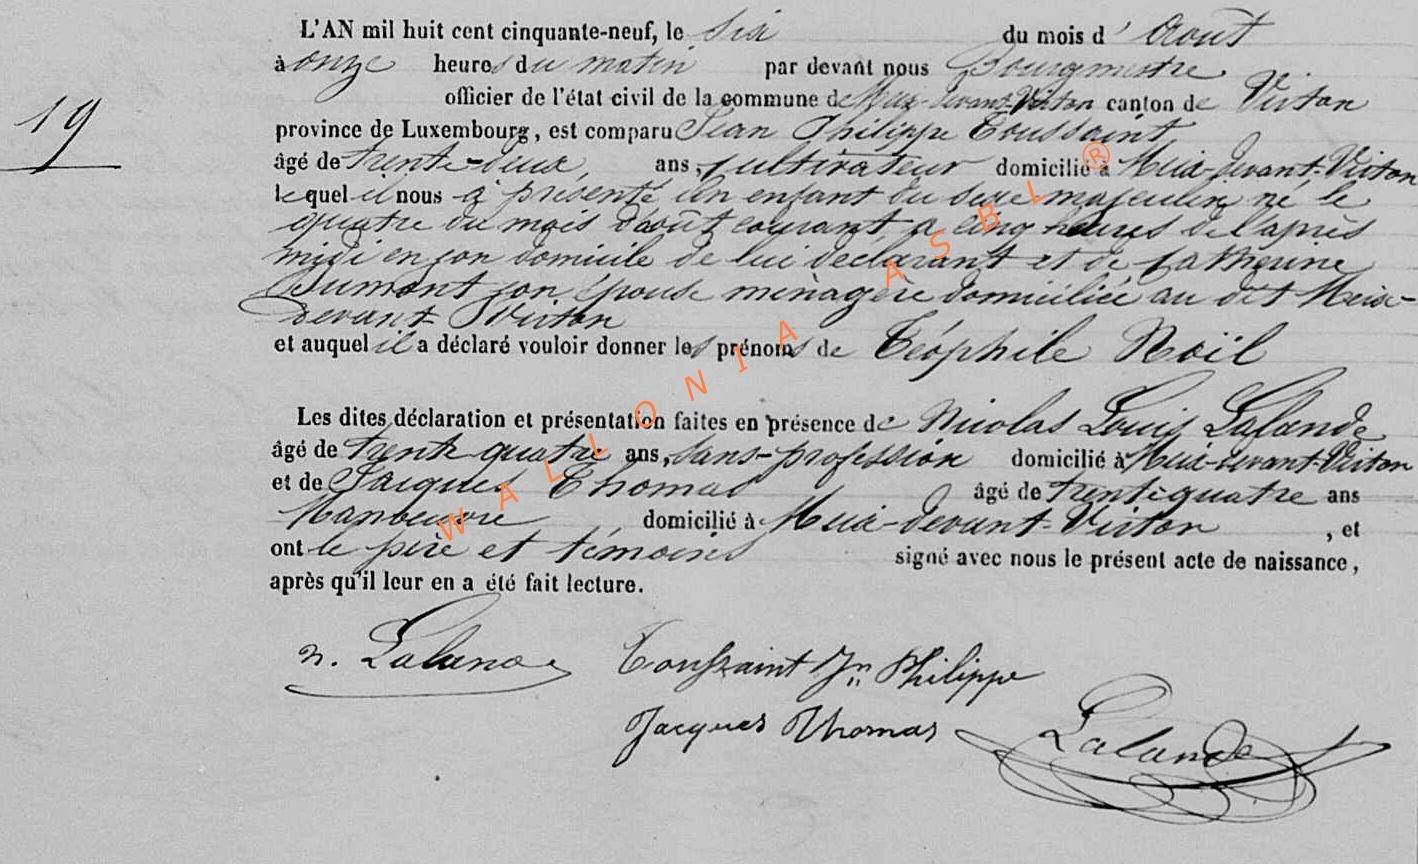 L'AN mil huit cent cinquante-neuf, le six du mois d' Aout
à onze heures du matin par devant nous Bourgmestre
officier de l'état civil de la commune de Meix-devant-Virton canton de Virton
19
province de Luxembourg, est comparu Jean Philippe Toussaint
âgé de trente-deux ans, cultivateur domicilié à Meix-devant-Virton
lequel il nous a présenté un enfant du sexe masculin né le
quatre du mois d'août courant a cinq heures de l'après
midi en son domicile de lui déclarant et de Catherine
Dumont son épouse ménagère domiciliée au dit Meix-
devant-Virton
et auquel il a déclaré vouloir donner les prénoms de Téophile Noïl
Les dites déclaration et présentation faites en présence de Nicolas Louis Lalande
âgé de trente quatre ans, sans-profession domicilié à Meix-devant-Virton
et de Jacques Thomas âgé de trente-quatre ans
Manoeuvre domicilié à Meix-devant-Virton, et
ont le père et témoins signé avec nous le présent acte de naissance,
après qu'il leur en a été fait lecture.
n. Lalande Toussaint Jn Philippe
Jacques Thomas Lalande
WALLONIA ASBL ®